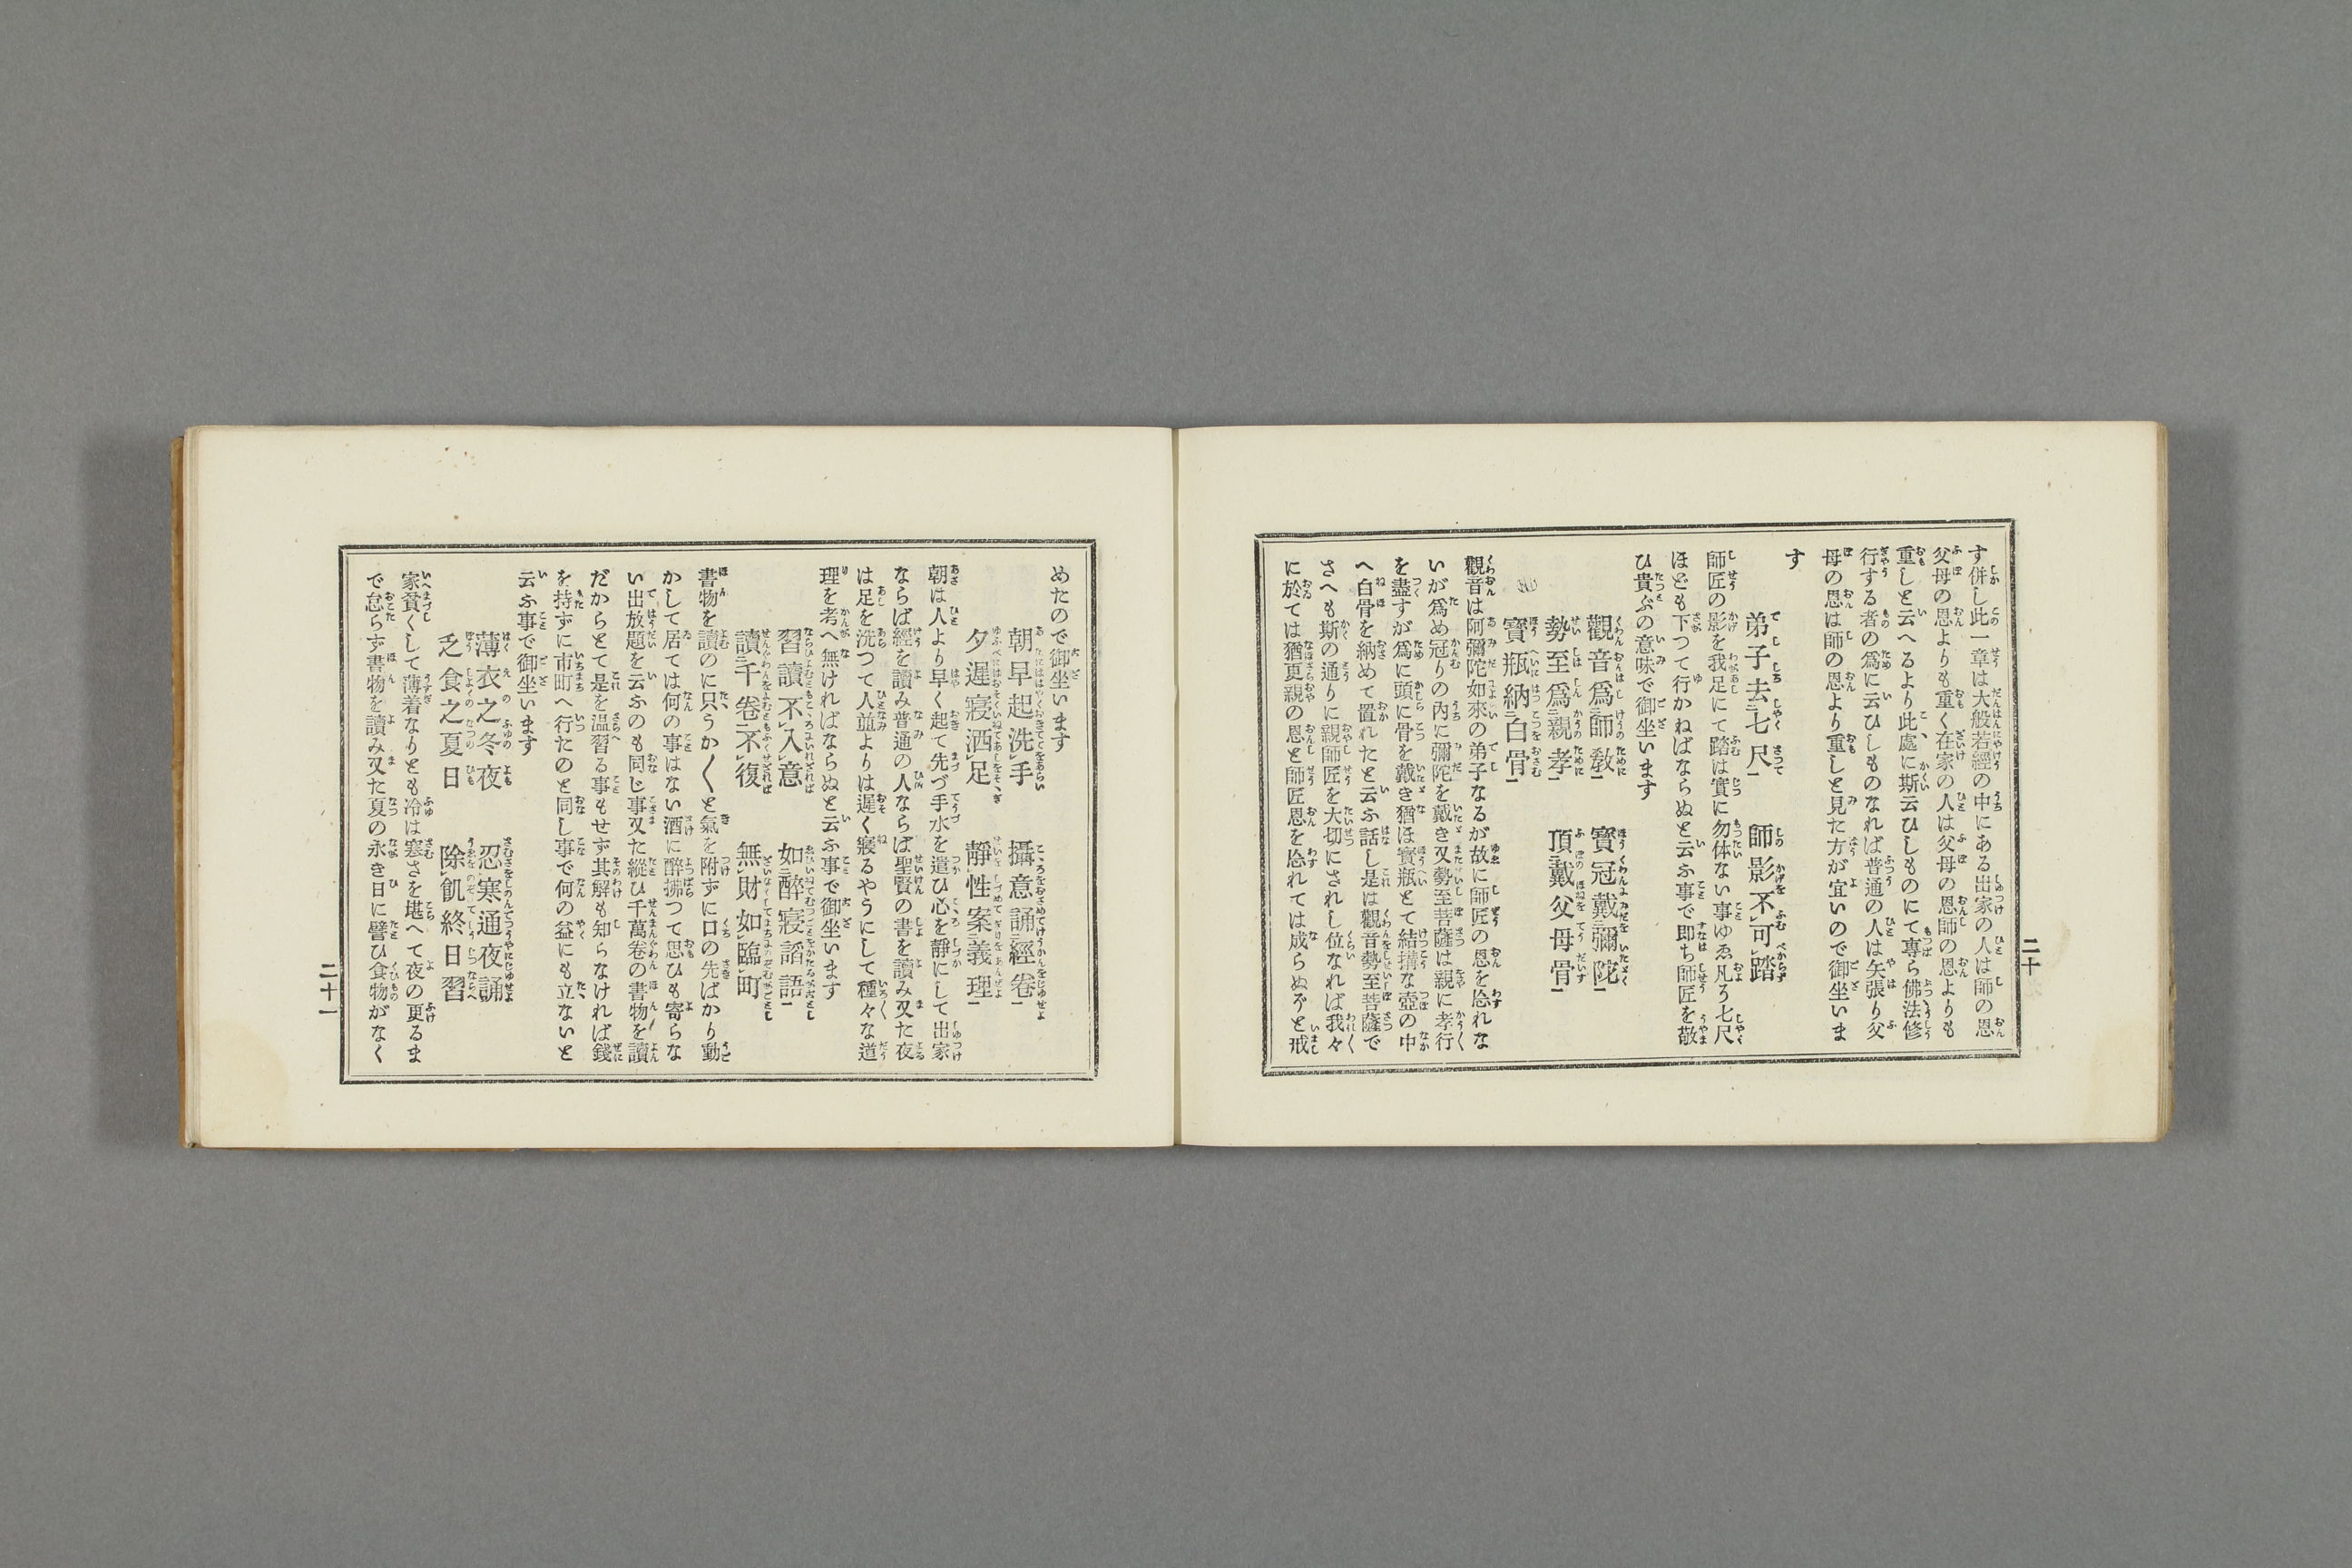 す併し此一章は大般若經の中にある出家の人は師の恩
父母の恩よりも重く在家の人は父母の恩師の恩よりも
重しと云へるより此處に斯云ひしものにて專ら佛法修
行する者の爲に云ひしものなれば普通の人は矢張り父
母の恩は師の恩より重しと見た方が宜いので御坐いま
す
弟子去二七尺一　師影不レ可レ踏
師匠の影を我足にて踏は實に勿体ない事ゆゑ凡ろ七尺
ほども下つて行かねばならぬと云ふ事で即ち師匠を敬
ひ貴ぶの意味で御坐います
觀音爲二師敎一　寶冠戴二彌陀一
勢至爲二親孝一　頂戴二父母骨一
寶瓶納二白骨一
觀音は阿彌陀如來の弟子なるが故に師匠の恩を忘れな
いが爲め冠りの內に彌陀を戴き又勢至菩薩は親に孝行
を盡すが爲に頭に骨を戴き猶ほ寳瓶とて結搆な壺の中
へ白骨を納めて置れたと云ふ話し是は觀音勢至菩薩で
さへも斯の通りに親師匠を大切にされし位なれば我々
に於ては猶更親の恩と師匠恩を忘れては成らぬぞと戒
二十
めたので御坐います
朝早起洗レ手　攝意誦二經卷一
夕遲寢洒レ足　靜レ性案二義理一
朝は人より早く起て先づ手水を遣ひ心を靜にして出家
ならば經を讀み普通の人ならば聖賢の書を讀み又た夜
は足を洗つて人並よりは遲く寢るやうにして種々な道
理を考へ無ければならぬと云ふ事で御坐います
習讀不レ入レ意　如二醉寢謟語一
讀二千卷一不レ復　無レ財如レ臨レ町
書物を讀のに只うか〱と氣を附ずに口の先ばかり動
かして居ては何の事はない酒に醉拂つて思ひも寄らな
い出放題を云ふのも同じ事又た縱ひ千萬卷の書物を讀
だからとて是を温習る事もせず其解も知らなければ錢
を持ずに市町へ行たのと同し事で何の益にも立ないと
云ふ事で御坐います
薄衣之冬夜　忍レ寒通夜誦
乏食之夏日　除レ飢終日習
家貧くして薄着なりとも冷は寒さを堪へて夜の更るま
で怠らず書物を讀み又た夏の永き日に譬ひ食物がなく
二十一